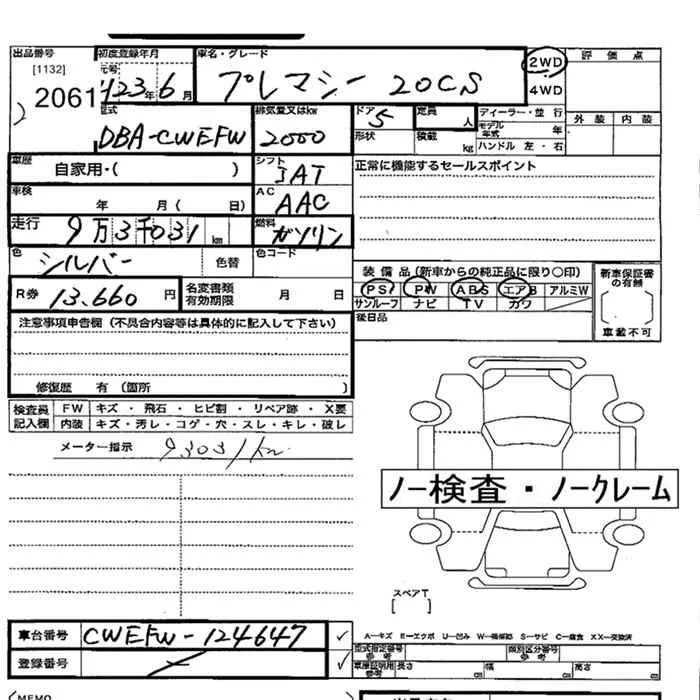 出品番号 初度登録年月 車名・グレード 2WD 評価点
[1132] 元号
2061 23年6月 プレマシー 20CS 4WD
型式 排気量又はkw ドア 定員 ディーラー・並行 外装 内装
DBA-CWEFW 2000 5 人 モデル年式 年
形状 積載 kg ハンドル 左・右
車歴 自家用・( ) シフト 正常に機能するセールスポイント
車検 年 月( 日) AC AAC
走行 9万3千031km 燃料 ガソリン
色 シルバー 色替 色コード
装備品(新車からの純正品に限り〇印) 新車保証書の有無
R券 13.660円 名変書類有効期限 月 日 PS PW ABS エアB アルミW
サンルーフ ナビ TV カワ
車載不可
注意事項申告欄(不具合内容等は具体的に記入して下さい) 後日品
修復歴 有(箇所 )
検査員 FW キズ・飛石・ヒビ割・リペア跡・X要
記入欄 内装 キズ・汚レ・コゲ・穴・スレ・キレ・破レ
メーター指示 93031km
ノー検査・ノークレーム
スペアT
[ ]
車台番号 CWEFW-124647
A-キズ E-エクボ U-凹み W-補修跡 S-サビ C-腐食 XX-交換済
登録番号
型式指定番号 参考 類別区分番号 参考
車庫証明用 参考 長さ cm 幅 cm 高さ cm
(MEMO